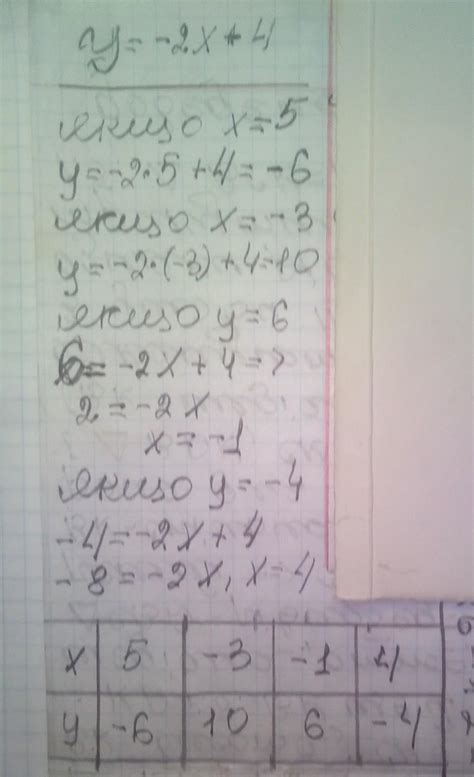 y = -2x + 4
якщо x = 5
y = -2·5 + 4 = -6
якщо x = -3
y = -2·(-3) + 4 = 10
якщо y = 6
6 = -2x + 4 =>
2 = -2x
x = -1
якщо y = -4
-4 = -2x + 4
-8 = -2x, x = 4
x 5 -3 -1 4
y -6 10 6 -4